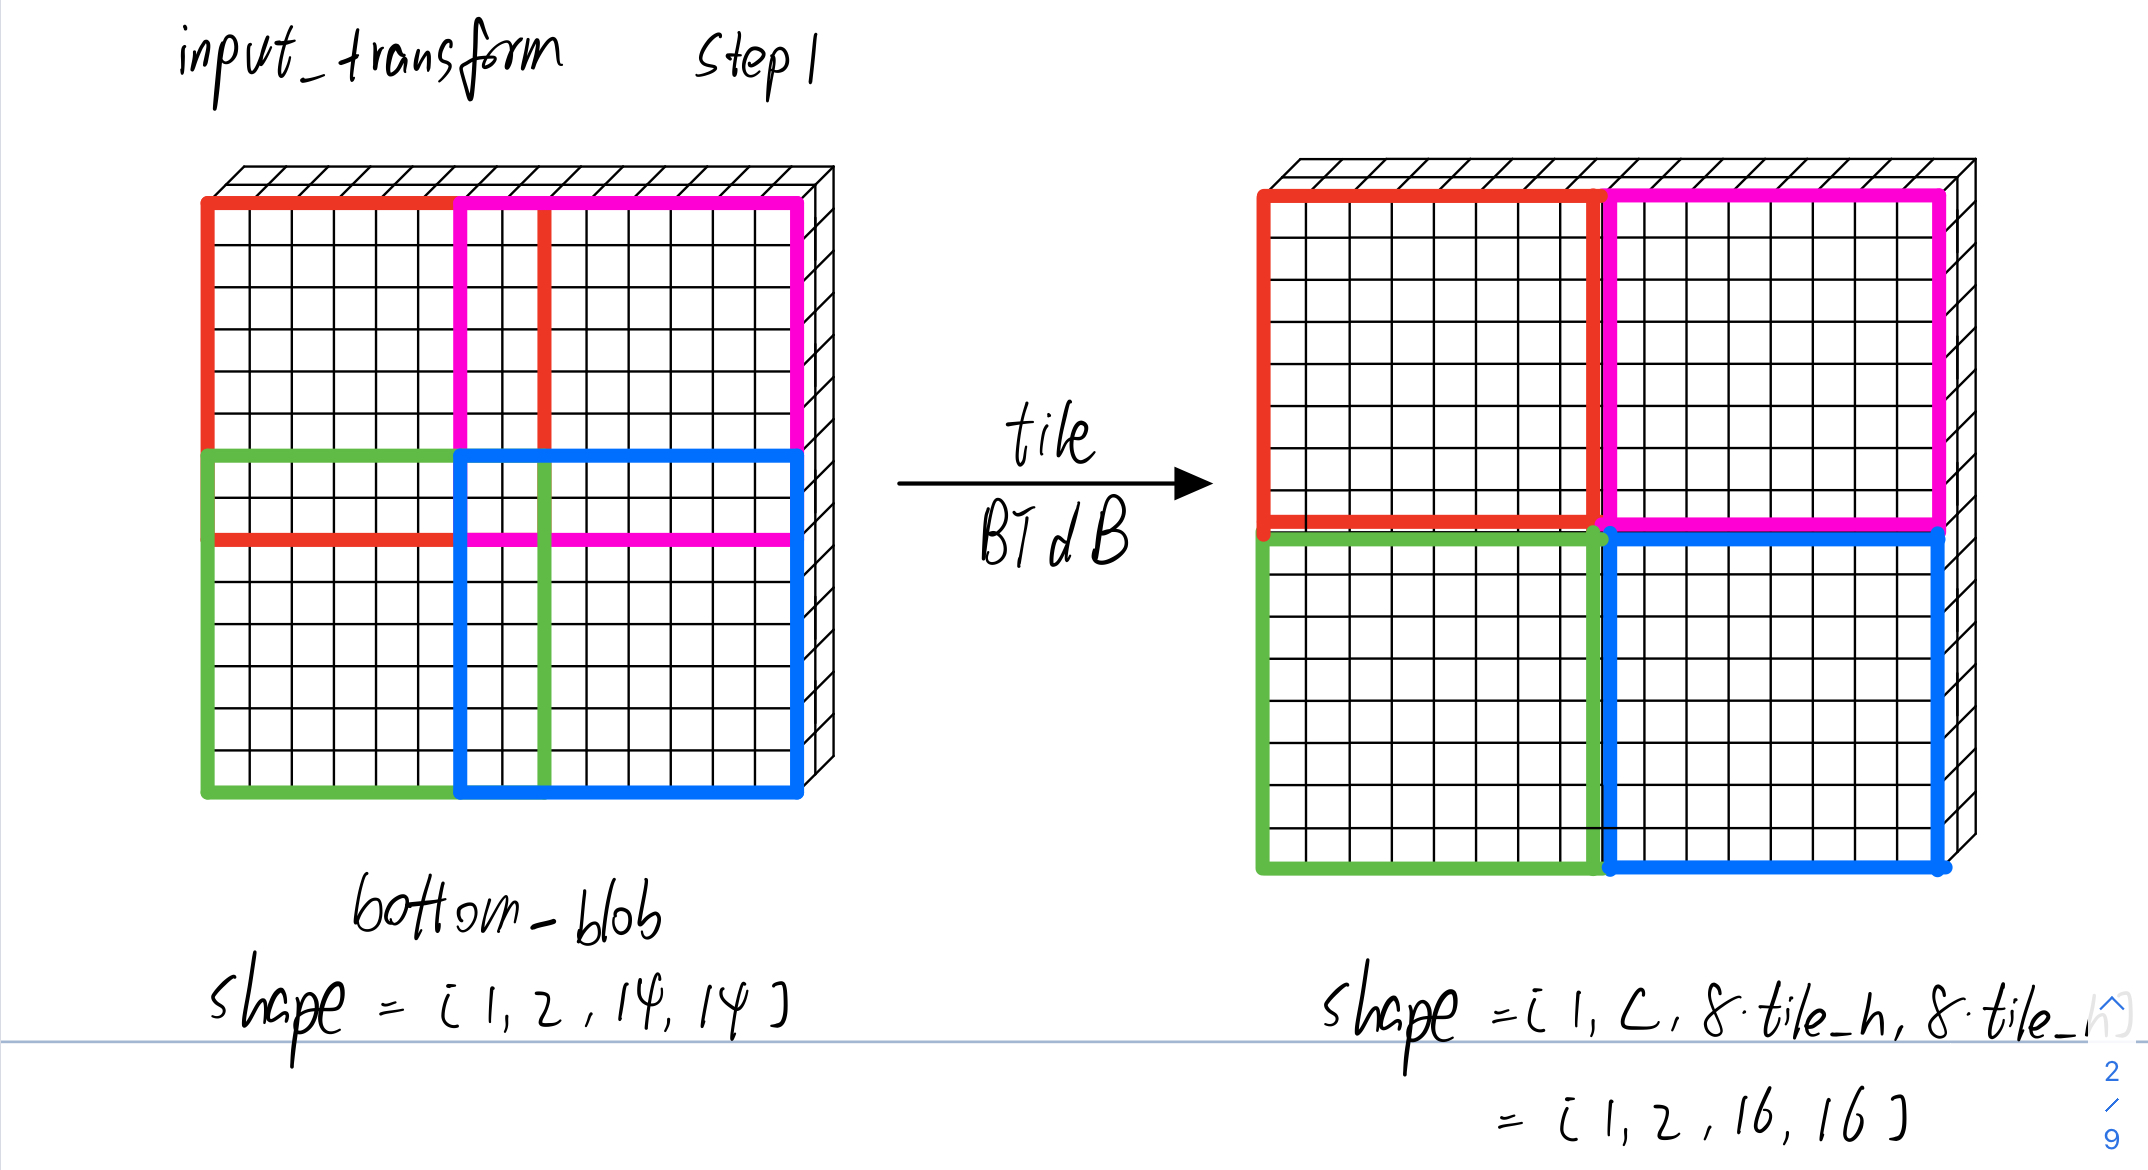 input_transform step1
tile
BTdB
bottom_blob
shape = [1, 2, 14, 14]
shape = [1, C, 8·tile_h, 8·tile_h]
= [1, 2, 16, 16]
2
/
9